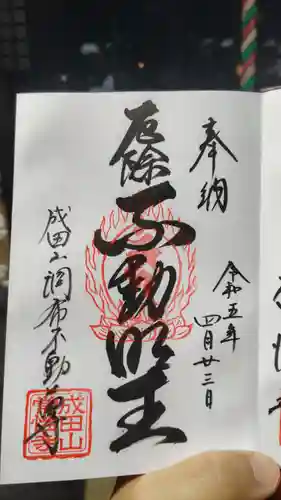 奉納
令和五年
四月廿三日
厄除
不動明王
成田山調布不動尊
成田山